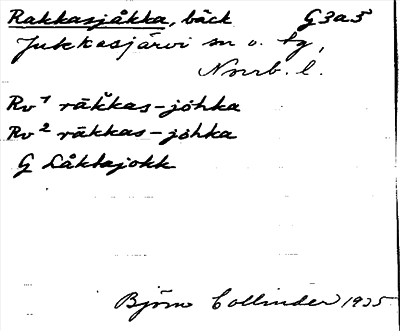 Rakkasjåkka, bäck G3a5
Jukkasjärvi sn o. tg,
Norrb. l.
Rv¹ räk̆kas-johka
Rv² räkkas-johka
G Låktajokk
Björn Collinder 1935